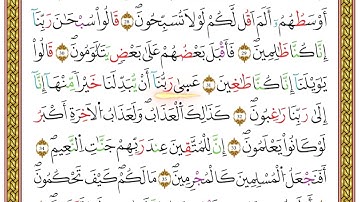 أَوْسَطُهُمْ أَلَمْ أَقُل لَّكُمْ لَوْلَا تُسَبِّحُونَ ﴿٢٨﴾ قَالُوا۟ سُبْحَٰنَ رَبِّنَآ
إِنَّا كُنَّا ظَٰلِمِينَ ﴿٢٩﴾ فَأَقْبَلَ بَعْضُهُمْ عَلَىٰ بَعْضٍ يَتَلَٰوَمُونَ ﴿٣٠﴾ قَالُوا۟
يَٰوَيْلَنَآ إِنَّا كُنَّا طَٰغِينَ ﴿٣١﴾ عَسَىٰ رَبُّنَآ أَن يُبْدِلَنَا خَيْرًا مِّنْهَآ إِنَّآ
إِلَىٰ رَبِّنَا رَٰغِبُونَ ﴿٣٢﴾ كَذَٰلِكَ ٱلْعَذَابُ وَلَعَذَابُ ٱلْءَاخِرَةِ أَكْبَرُ
لَوْ كَانُوا۟ يَعْلَمُونَ ﴿٣٣﴾ إِنَّ لِلْمُتَّقِينَ عِندَ رَبِّهِمْ جَنَّٰتِ ٱلنَّعِيمِ ﴿٣٤﴾
أَفَنَجْعَلُ ٱلْمُسْلِمِينَ كَٱلْمُجْرِمِينَ ﴿٣٥﴾ مَا لَكُمْ كَيْفَ تَحْكُمُونَ